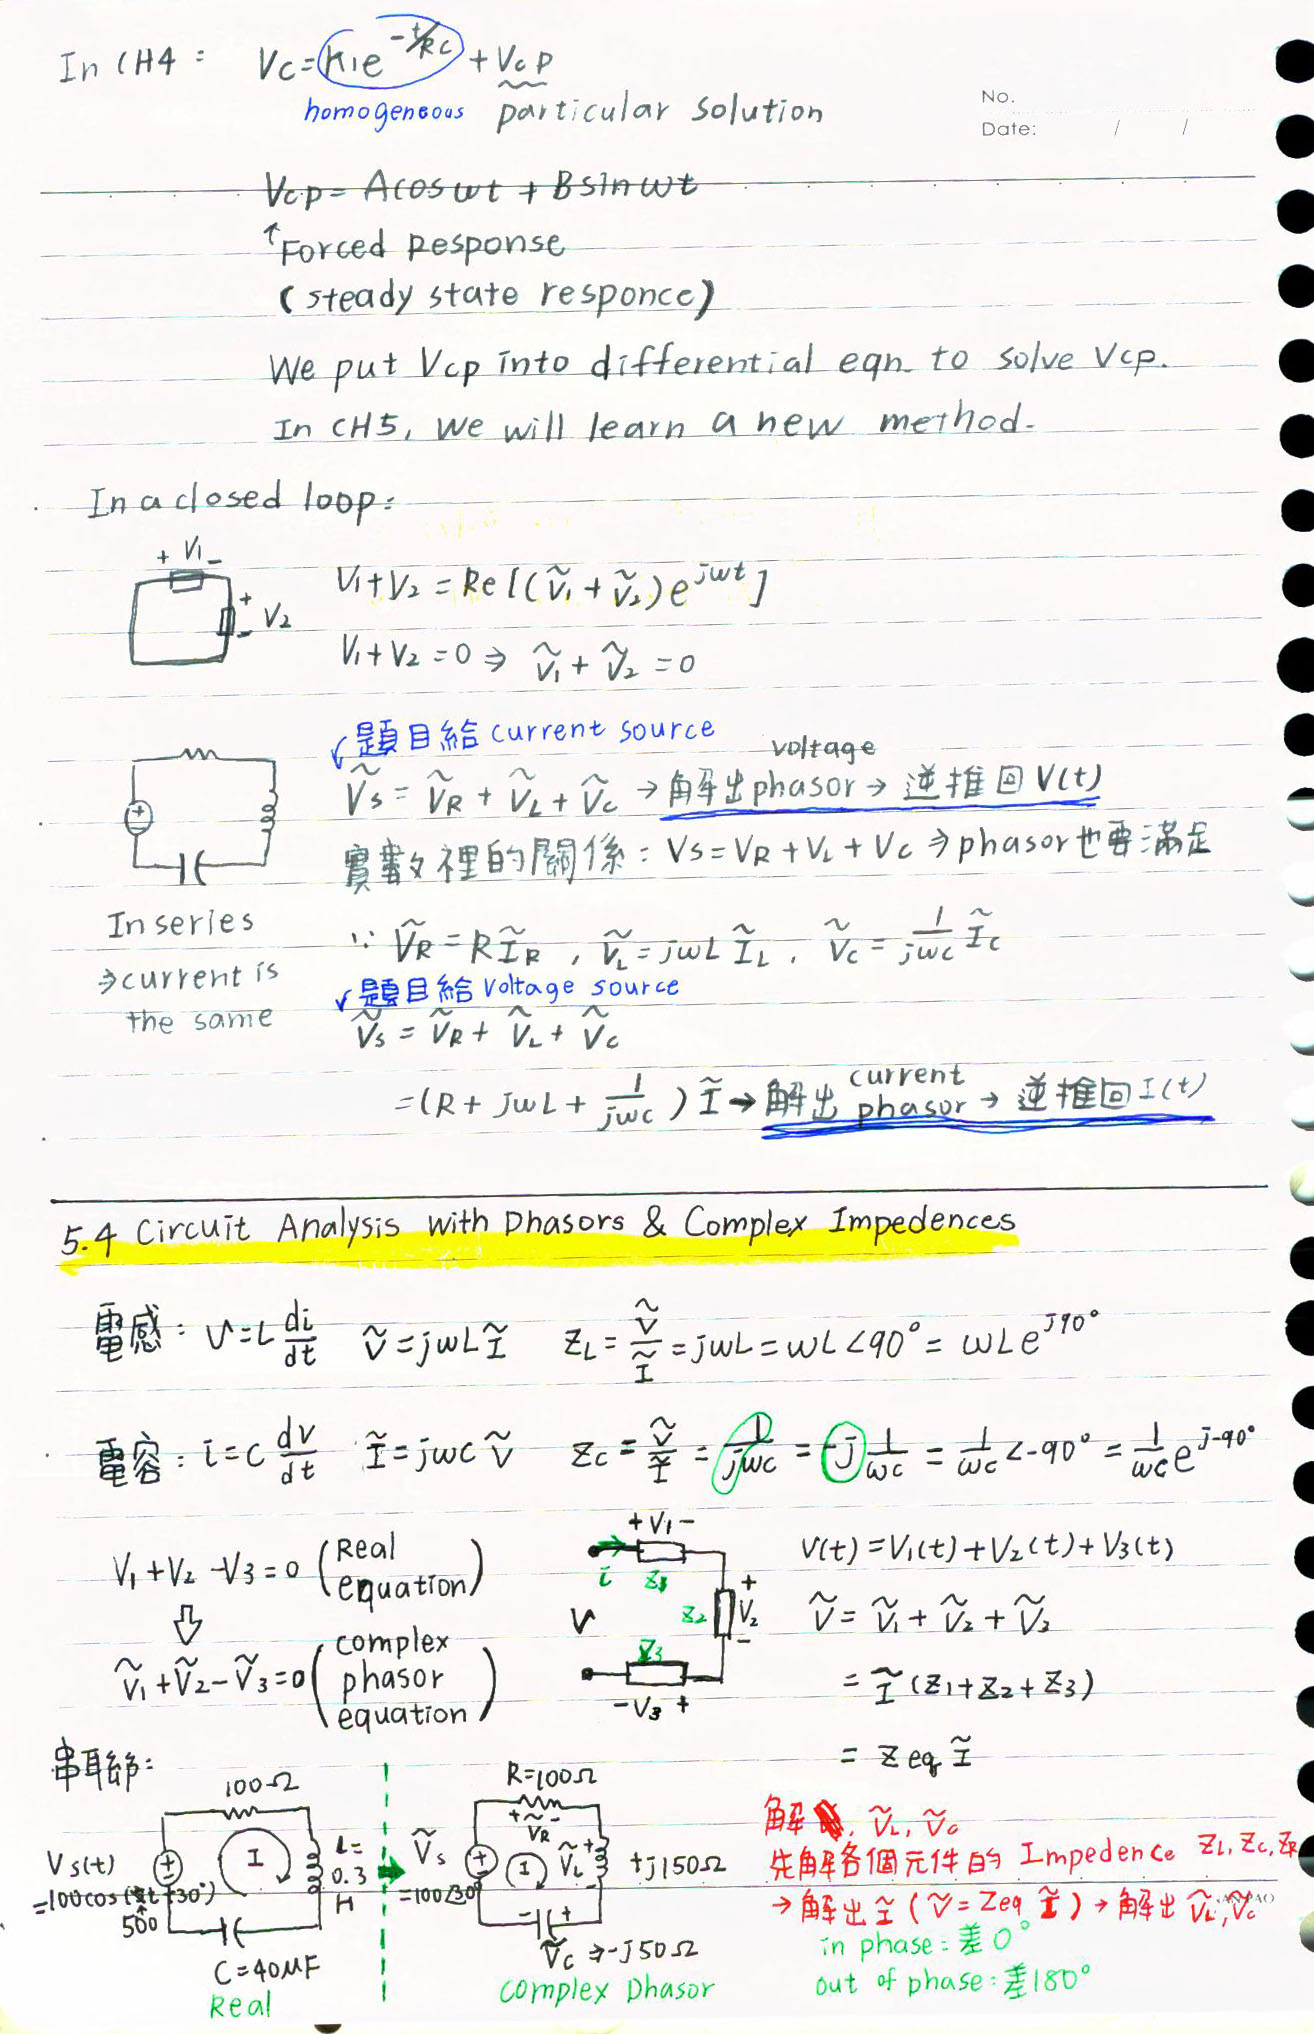 In CH4 : Vc = K1e^-t/RC + Vcp
homogeneous particular solution
No.
Date: / /
Vcp = Acoswt + Bsinwt
↑Forced Response
(steady state responce)
We put Vcp into differential eqn. to solve Vcp.
In CH5, we will learn a new method.
In a closed loop:
+ V1 -
+ V2 -
V1+V2 = Re[(Ṽ1+Ṽ2)e^jwt]
V1+V2 = 0 ⇒ Ṽ1+Ṽ2 = 0
↙題目給 current source
Ṽs = ṼR + ṼL + Ṽc → 解出 voltage phasor → 逆推回 V(t)
實數裡的關係: Vs = VR + VL + Vc ⇒ phasor 也要滿足
In series
⇒ current is
the same
∵ ṼR = RĨR , ṼL = jwL ĨL , Ṽc = 1/jwc Ĩc
↙題目給 Voltage source
Ṽs = ṼR + ṼL + Ṽc
= (R + jwL + 1/jwc) Ĩ → 解出 current phasor → 逆推回 I(t)
5.4 Circuit Analysis with Phasors & Complex Impedences
電感: V = L di/dt Ṽ = jwLĨ ZL = Ṽ/Ĩ = jwL = wL∠90° = wLe^j90°
電容: i = C dv/dt Ĩ = jwcṼ Zc = Ṽ/Ĩ = 1/jwc = -j 1/wc = 1/wc ∠-90° = 1/wc e^j-90°
V1+V2-V3=0 (Real equation)
⇩
Ṽ1+Ṽ2-Ṽ3=0 (complex phasor equation)
+ V1 -
i
Z2
+ V2 -
V
Z3
- V3 +
V(t) = V1(t)+V2(t)+V3(t)
Ṽ = Ṽ1 + Ṽ2 + Ṽ3
= Ĩ (Z1+Z2+Z3)
= Zeq Ĩ
串聯:
100Ω
Vs(t)
=100cos( t+30°)
500
I
L=
0.3
H
C=40μF
Real
R=100Ω
+ ṼR -
Ṽs
=100∠30°
I
ṼL
+j150Ω
Ṽc ⇒ -j50Ω
Complex Phasor
解 , ṼL, Ṽc
先解各個元件的 Impedence ZL, Zc, ZR
→ 解出 Ĩ (Ṽ = Zeq Ĩ) → 解出 ṼL, Ṽc
in phase: 差0°
out of phase: 差180°